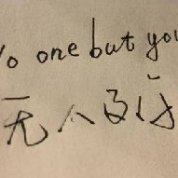 No one but you
无人及你